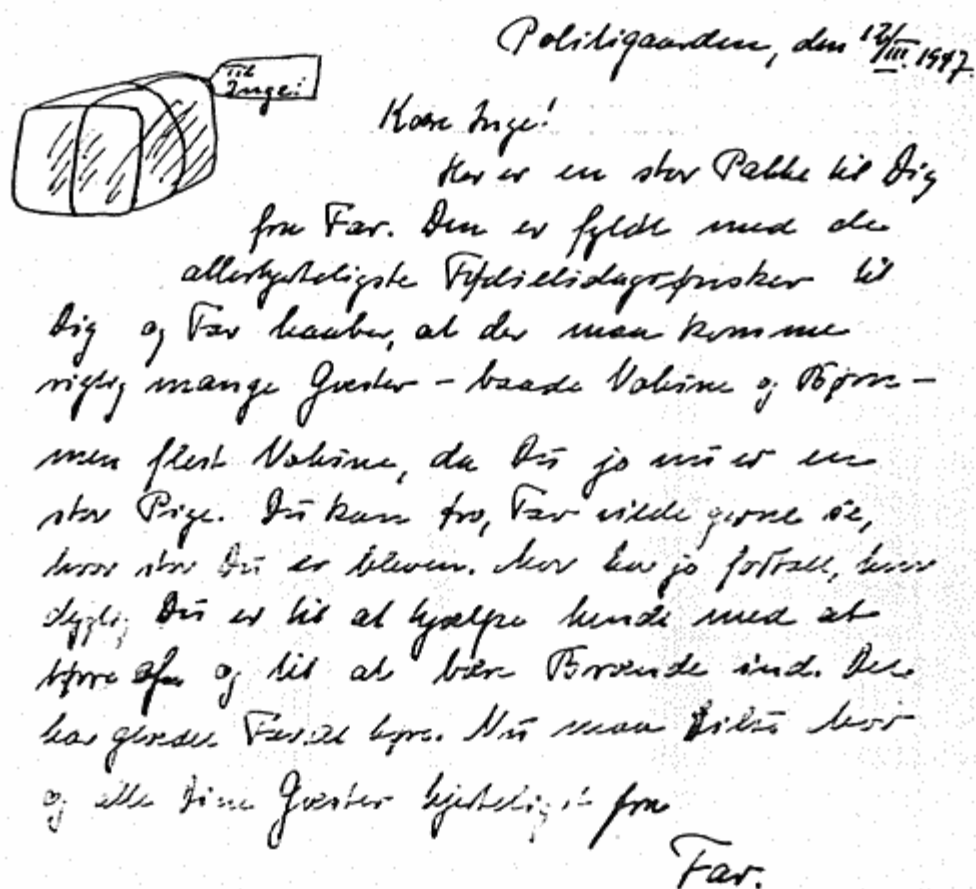 Politigaarden, den 12/III. 1947.
Til
Inge!
Kære Inge!
Her er en stor Pakke til Dig
fra Far. Den er fyldt med de
allerhjerteligste Fødselsdagsønsker til
Dig og Far haaber, at der maa komme
rigtig mange Gæster - baade Voksne og Børn -
men flest Voksne, da Du jo nu er en
stor Pige. Du kan tro, Far vilde gerne se,
hvor stor Du er bleven. Mor har jo fortalt, hvor
dygtig Du er til at hjælpe hende med at
tørre af og til at bære Brænde ind. Det
har glædet Far at høre. Nu maa Du hilse Mor
og alle Dine Gæster hjerteligst fra
Far.